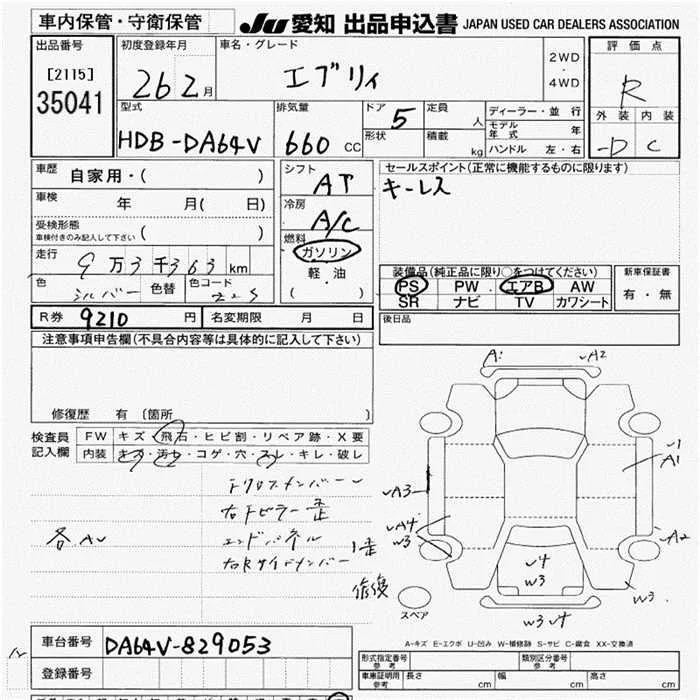 車内保管・守衛保管
JU 愛知 出品申込書 JAPAN USED CAR DEALERS ASSOCIATION
出品番号
[2115]
35041
初度登録年月
26 2月
車名・グレード
エブリィ
2WD
・
4WD
評価点
R
外装 内装
-D C
型式
HDB-DA64V
排気量
660 CC
ドア 5
形状
定員 人
積載 kg
ディーラー・並行
モデル年式 年
ハンドル 左・右
車歴 自家用・( )
車検 年 月( 日)
受検形態
車検付きのみ記入して下さい ( )
走行 9万3千363km
色 シルバー 色替 色コード Z2S
シフト
AT
冷房
A/C
燃料
ガソリン
・
軽油
( )
セールスポイント(正常に機能するものに限ります)
キーレス
装備品(純正品に限り○をつけてください)
PS PW エアB AW
SR ナビ TV カワシート
新車保証書
有・無
後日品
R券 9210 円 名変期限 月 日
注意事項申告欄(不具合内容等は具体的に記入して下さい)
修復歴 有 〔箇所 〕
検査員記入欄
FW キズ・飛石・ヒビ割・リペア跡・X要
内装 キズ・汚れ・コゲ・穴・スレ・キレ・破レ
右Fピラー歪
エンドパネル
右Rサイドメンバー
修復
各AU
A1
A2
A1
A3
A4
W3
A2
U4
W3
W3
W3 U4
スペア
A-キズ E-エクボ U-凹み W-補修跡 S-サビ C-腐食 XX-交換済
車台番号 DA64V-829053
登録番号
形式指定番号
参考
類別区分番号
参考
車庫証明用
参考
長さ cm 幅 cm 高さ cm